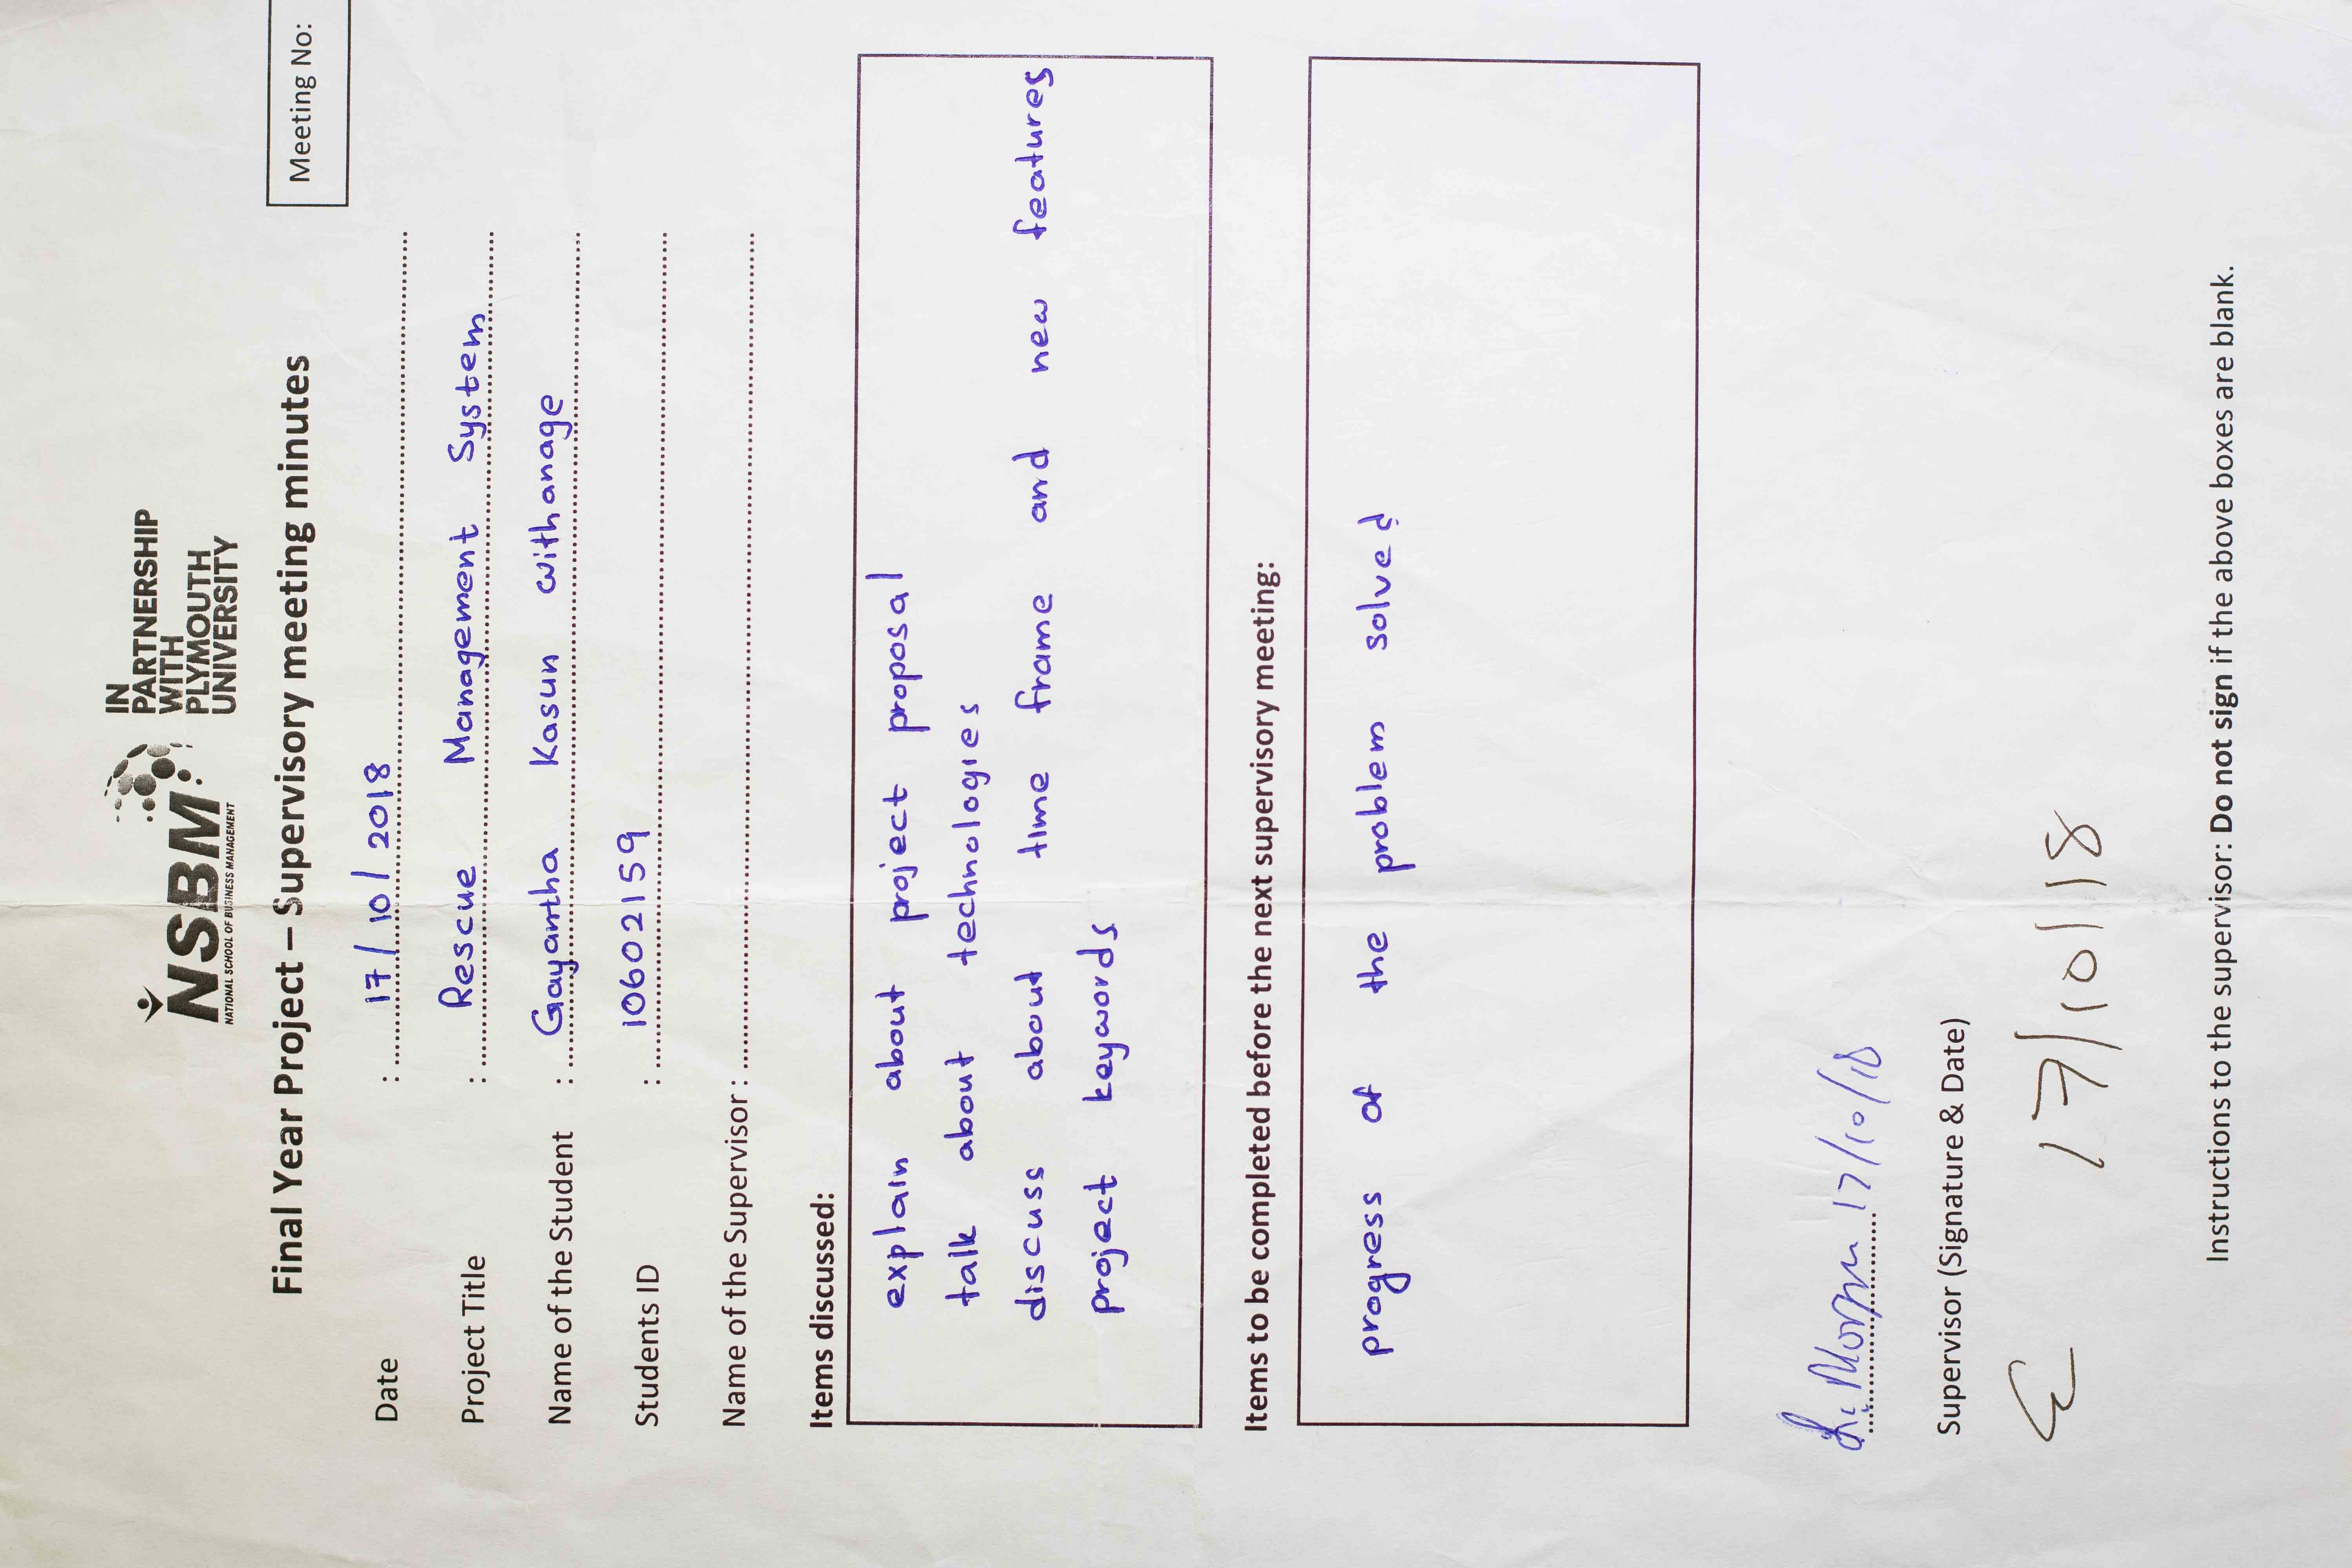 NSBM
NATIONAL SCHOOL OF BUSINESS MANAGEMENT
IN
PARTNERSHIP
WITH
PLYMOUTH
UNIVERSITY
Final Year Project – Supervisory meeting minutes
Meeting No:
Date : 17/10/2018
Project Title : Rescue Management System
Name of the Student : Gayantha Kasun withanage
Students ID : 10602159
Name of the Supervisor :
Items discussed:
explain about project proposal
talk about technologies
discuss about time frame and new features
project keywords
Items to be completed before the next supervisory meeting:
progress of the problem solved
17/10/18
Supervisor (Signature & Date)
17/10/18
Instructions to the supervisor: Do not sign if the above boxes are blank.